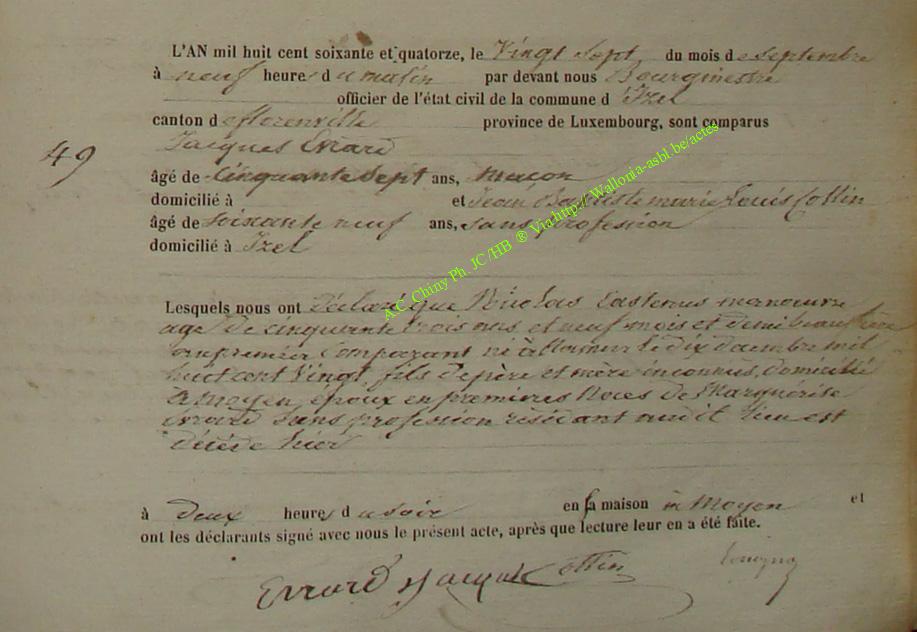 L'AN mil huit cent soixante et quatorze, le Vingt Sept du mois de septembre
à neuf heures du matin par devant nous Bourgmestre
officier de l'état civil de la commune d'Izel
canton de florenville province de Luxembourg, sont comparus
49 Jacques Evrard
âgé de Cinquante Sept ans, Maçon
domicilié à et Jean Baptiste marie Louis Collin
âgé de soixante neuf ans, sans profession
domicilié à Izel
Lesquels nous ont Déclaré que Nicolas manœuvre
agé de cinquante trois ans et neuf mois et demi beau frère
au premier Comparant né à le dix mil
huit cent Vingt fils de père et mère inconnus, domicilié
à Moyen, époux en premières Noces de Marguérite
Evrard Sans profession résidant audit lieu est
décédé hier
à deux heures du soir en sa maison à Moyen et
ont les déclarants signé avec nous le présent acte, après que lecture leur en a été faite.
Evrard Jacques Collin
A.C. Chiny Ph. JC/HB ® Via:http://Wallonia-asbl.be/actes